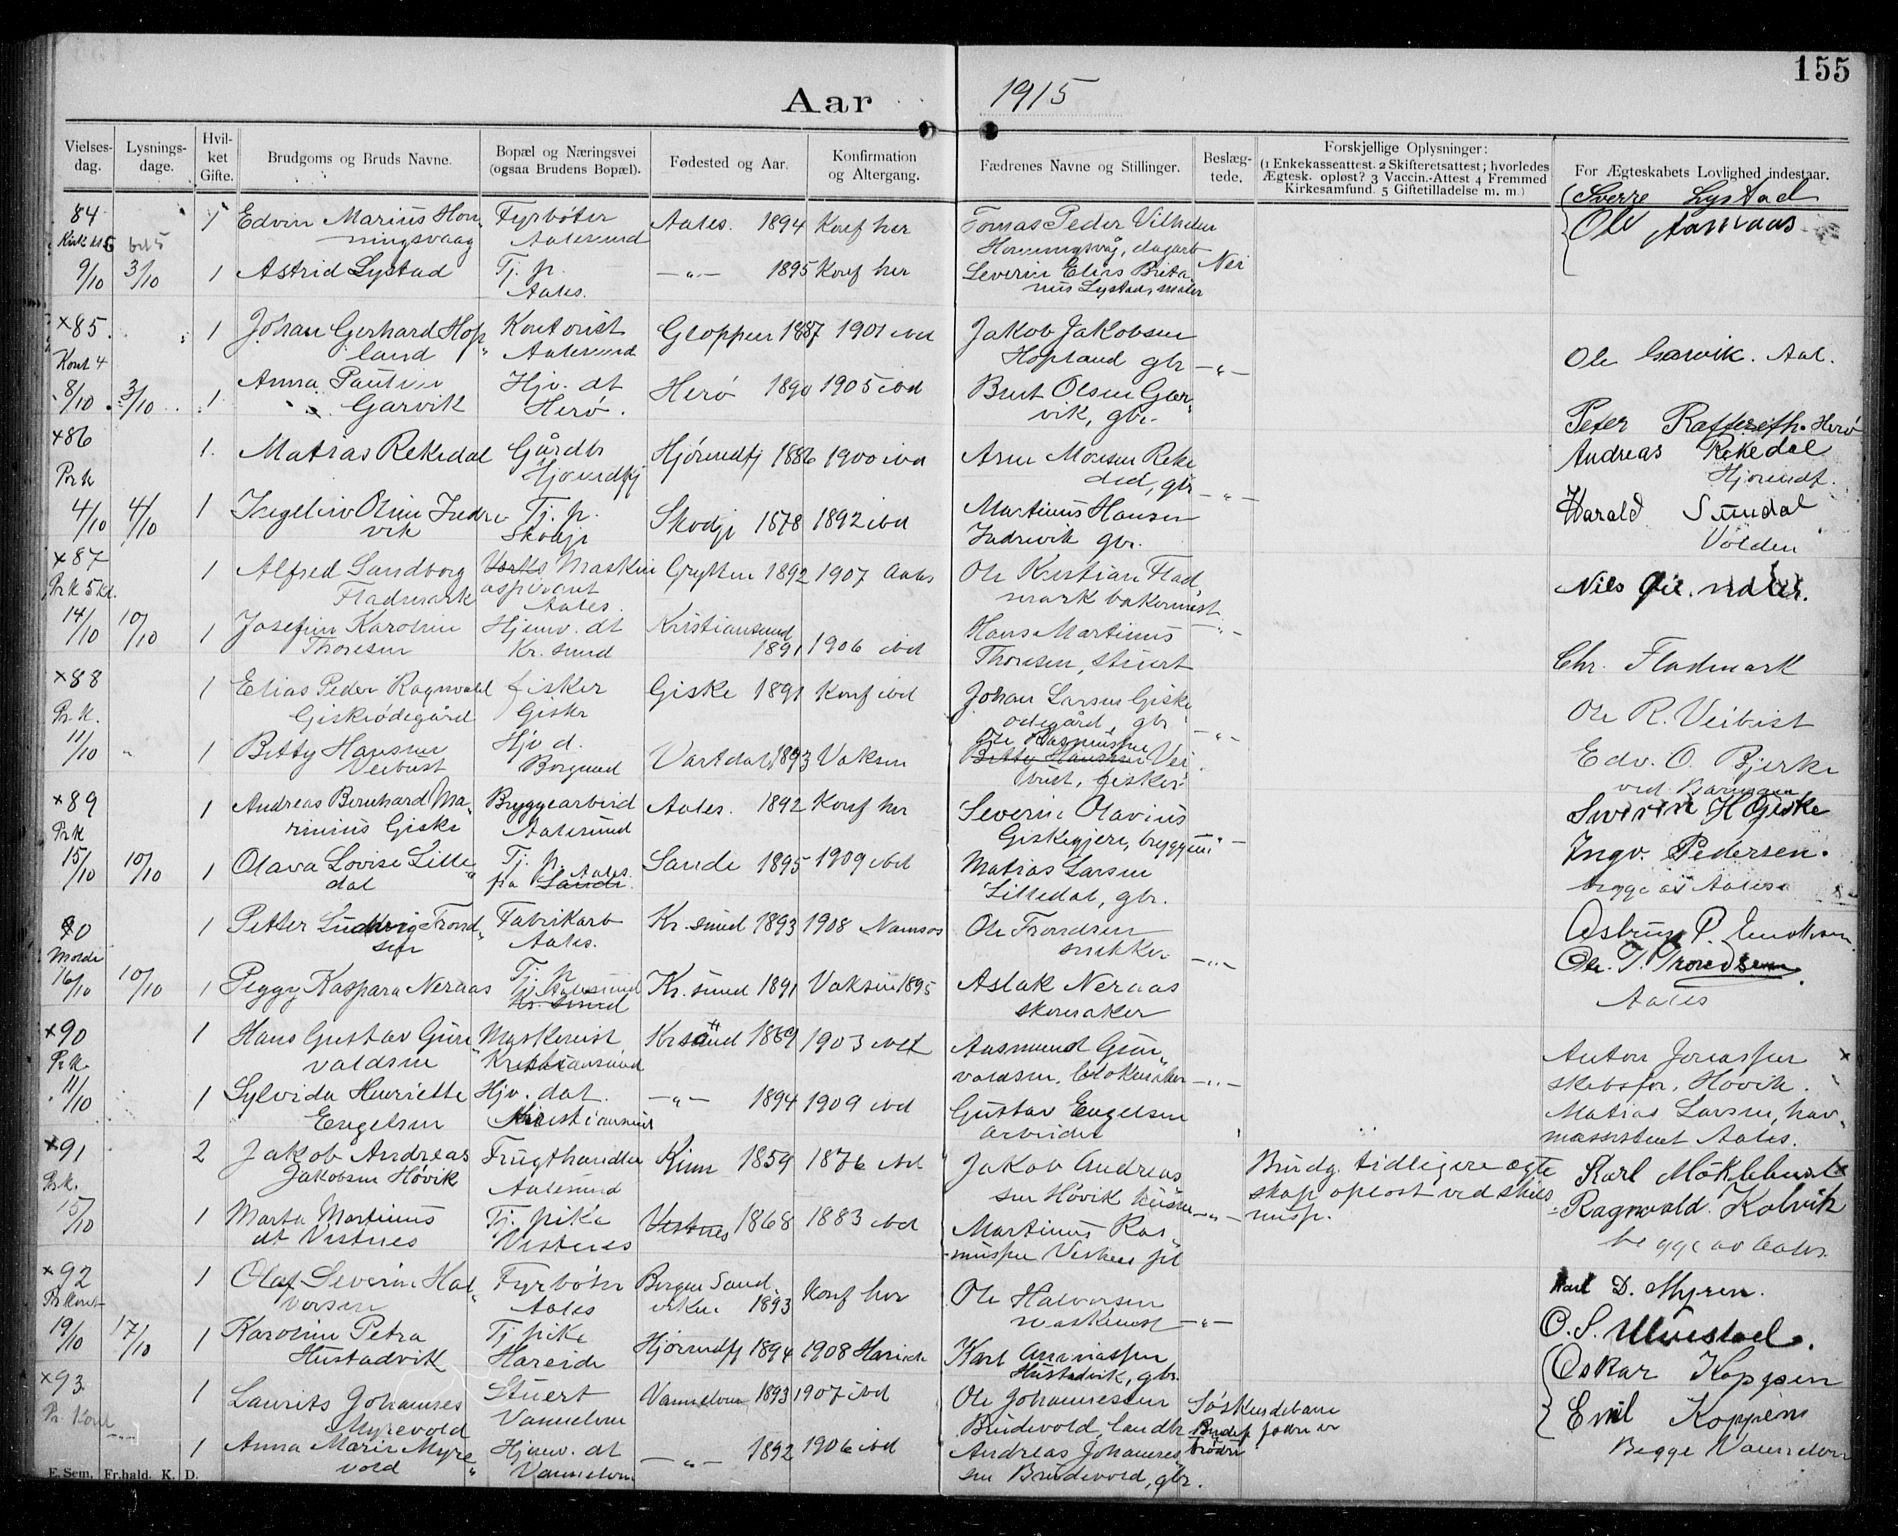 155
Aar 1915
Vielses-dag. Lysnings-dage. Hvil-ket Gifte. Brudgoms og Bruds Navne. Bopæl og Næringsvei (ogsaa Brudens Bopæl). Fødested og Aar. Konfirmation og Altergang. Fædrenes Navne og Stillinger. Beslæg-tede. Forskjellige Oplysninger: (1 Enkekasseattest. 2 Skifteretsattest; hvorledes Ægtesk. opløst? 3 Vaccin.-Attest 4 Fremmed Kirkesamfund. 5 Giftetilladelse m. m.) For Ægteskabets Lovlighed indestaar.
Sverre Lystad
84 1 Edvin Marius Hon- Fyrbøter Aales. 1894 Konf her Tomas Peder Vilhelm Ole
ningsvaag Aalesund Honningsvåg, dagarb
9/10 3/10 1 Astrid Lystad Tj. p. —„— 1895 Konf her Severin Elias Brita Nei
Aales. nus Lystad, maler
×85. 1 Johan Gerhard Hop Kontorist Gloppen 1887 1901 ibd Jakob Jakobsen
Kont 4 land Aalesund Hopland gbr —„— Ole Garvik. Aal.
8/10 3/10 1 Anna Hjv. dt Herø 1890 1905 ibd Bernt Olsen Gar-
Garvik Herø. vik, gbr. Peter Herø
×86 1. Matias Rekedal Gårdbr Hjørundfj 1886 1900 ibd Arne Monsen Reke Andreas Rekedal
Pr k Hjørundfj dal, gbr —„— Hjørundf.
4/10 4/10 1 Oline Indre Tj. p. Skodje 1878 1892 ibd Martinus Hansen Harald Sundal
vik Skodje Indrevik gbr. Volden
×87 1 Alfred Sandborg Maskin Grytten 1892 1907 Aales Ole Kristian Flad Nils
Pr k 5 kl. Fladmark aspirant Aales. mark
14/10 10/10 1 Josefine Karoline Hjemv. dt Kristiansund Hans Martinus —„—
Thoresen Kr. sund 1891 1906 ibd Thoresen, stuert Chr. Fladmark
×88 1 Elias Peder Ragnvald fisker Giske 1891 Konf ibd Johan Larsen Giske
Pr. k. Giskeødegård Giske ødegård, gbr —„— Ole R. Veibust
11/10 „ 1 Betty Hansen Hjv d. Vartdal, 1893 Voksen Ole Rasmussen Edv. O. Bjerke
Veibust Borgund Betty Hansen Vei
bust, fisker
×89 1 Andreas Bernhard Ma- Bryggearbeid Aales. 1892 Konf her Severin Olavius Severin H Giske
Pr k rinius Giske Aalesund Giskegjere,
15/10 10/10 1 Olava Lovise Lille- Tj. p. Aales. Sande 1895 1909 ibd Matias Larsen Ingv. Pedersen.
dal fra Sande. Lilledal, gbr. begge av Aales
90 1 Petter Ludvig Trond- Fabrikarb Kr. sund 1893 1908 Namsos Ole Trondsen
Molde sen Aales. snekker —„— Ole. T. Trondsen.
16/10 10/10 1 Peggy Kaspara Neraas Tj. p. Aalesund Kr. sund 1891 Voksen 1895 Aslak Neraas Aales
Kr. Sund skomaker
×90 1 Hans Gustav Gun Maskinist Kr sund 1889 1903 ibd Aasmund Gun- Anton Jonassen ×
Pr. k. valdsen Kristiansund valdsen, blokmaker —„— skibsfør. Høvik.
11/10 1 Sylvida Henriette Hjv. dat. —„— 1894 1909 ibd Gustav Engelsen Matias Larsen, hav-
Engelsen Kristiansund arbeider Aales.
×91 2 Jakob Andreas Frugthandler Kinn 1859 1876 ibd Jakob Andreas Brudg. tidligere ægte Karl Møklebust ×
Pr. k. Jakobsen Høvik Aalesund sen Høvik —„— skap opløst ved skils
15/10 1 Marta Martinus Tj. pike Vestnes 1868 1883 ibd Martinus Ras- misp. Ragnvald. Kolvik
dt Vestnes Vestnes mussen begge av Aales.
×92 1 Olaf Severin Hal- Fyrbøter Bergen Sand- Konf her Ole Halvorsen Karl D. Myren.
Pr kont vorsen Aales viken 1893 maskinist —„—
19/10 17/10 1 Karoline Petra Tj pike Hjørundfj 1894 1908 Hareide Karl O. S. Ulvestad.
Hustadvik Hareide Hustadvik, gbr. Oskar
×93 1 Laurits Johannes Stuert Vannelven 1893 1907 ibd Ole Johannessen Søskendebarn
Pr. Kont Myrevold Vannelven Brudevold, landh Emil
1 Anna Marie Myre Hjemv. dt —„— 1892 1906 ibd Andreas Johannes brødre Begge Vannelven
vold Vannelven sen Brudevold, gbr.
E. Sem, Fr.hald. K. D.